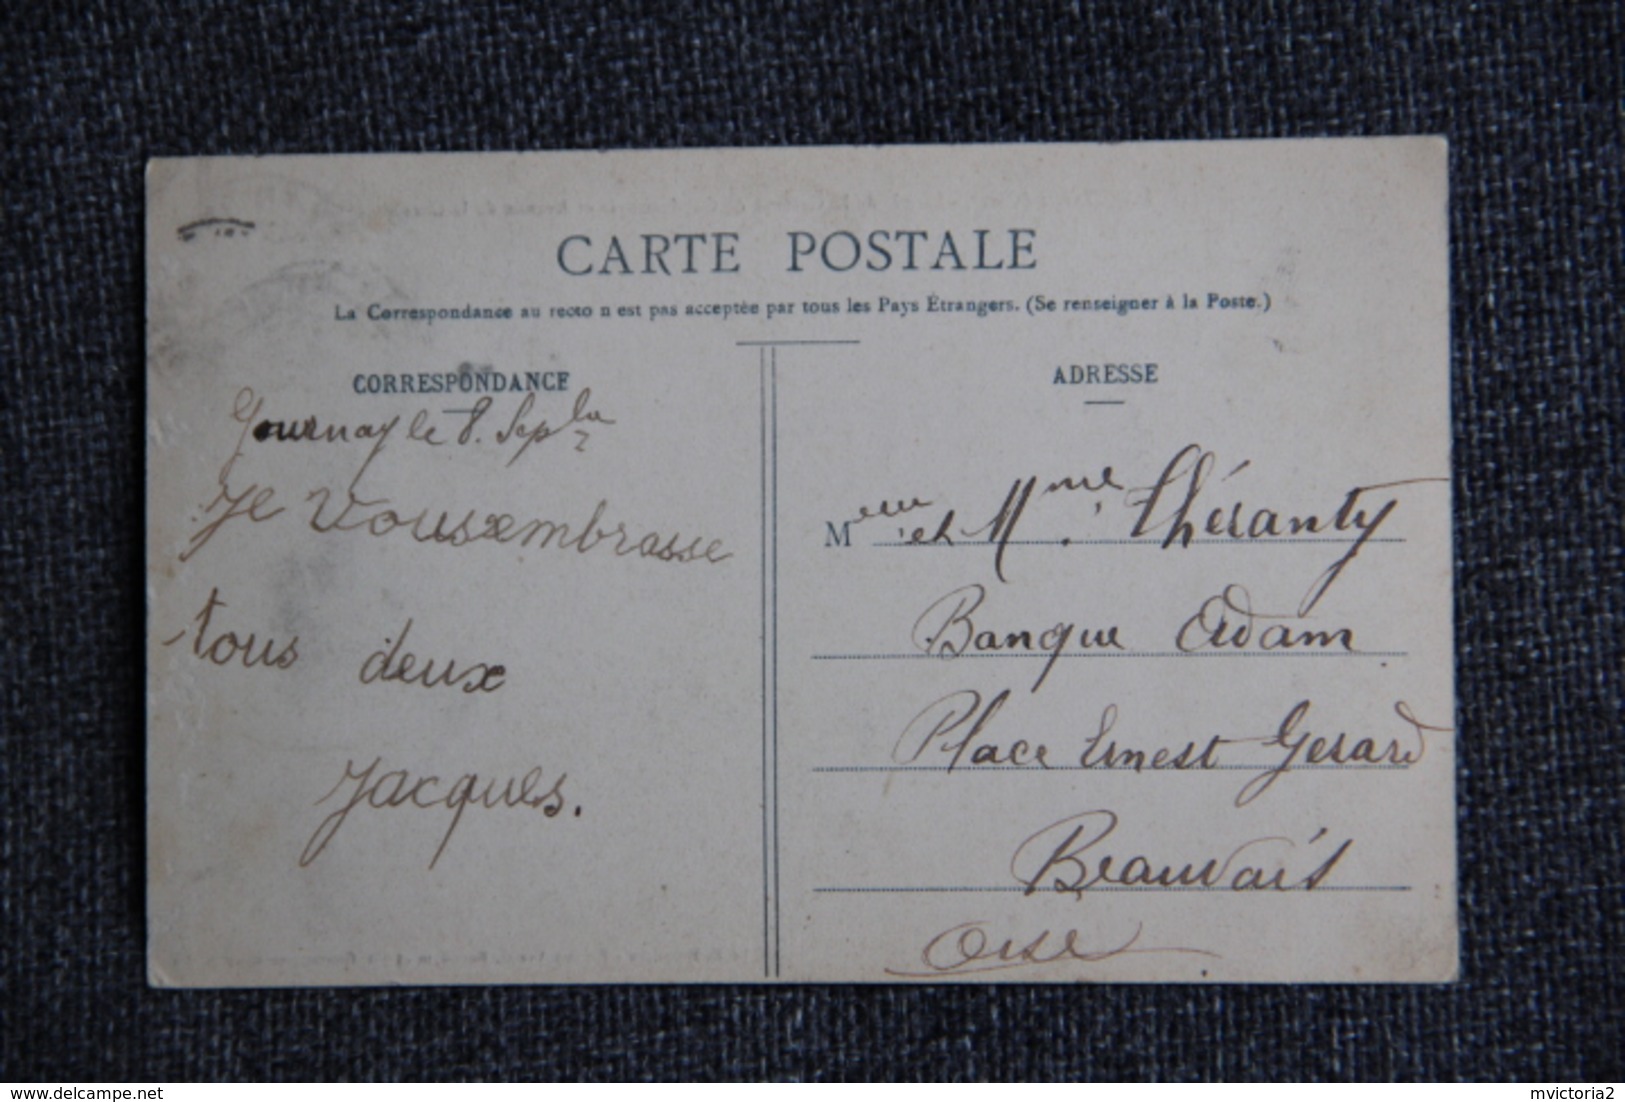 CARTE POSTALE
La Correspondance au recto n'est pas acceptée par tous les Pays Étrangers. (Se renseigner à la Poste.)
CORRESPONDANCE
Gournay le 8. Sepbre
Je vous embrasse
tous deux
Jacques.
ADRESSE
Meur et Mme. Théranty
Banque Adam
Place Ernest Gerard
Beauvais
Oise
delcampe.net
mvictoria2